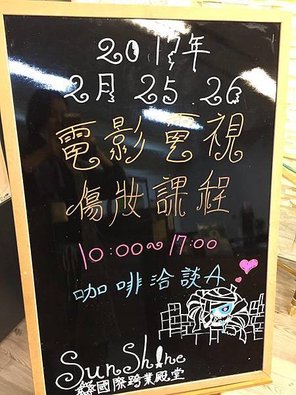 2017年
2月 25.26
電影電視
傷妝課程
10:00~17:00
咖啡洽談A
SunSh!ne
國際跨業殿堂